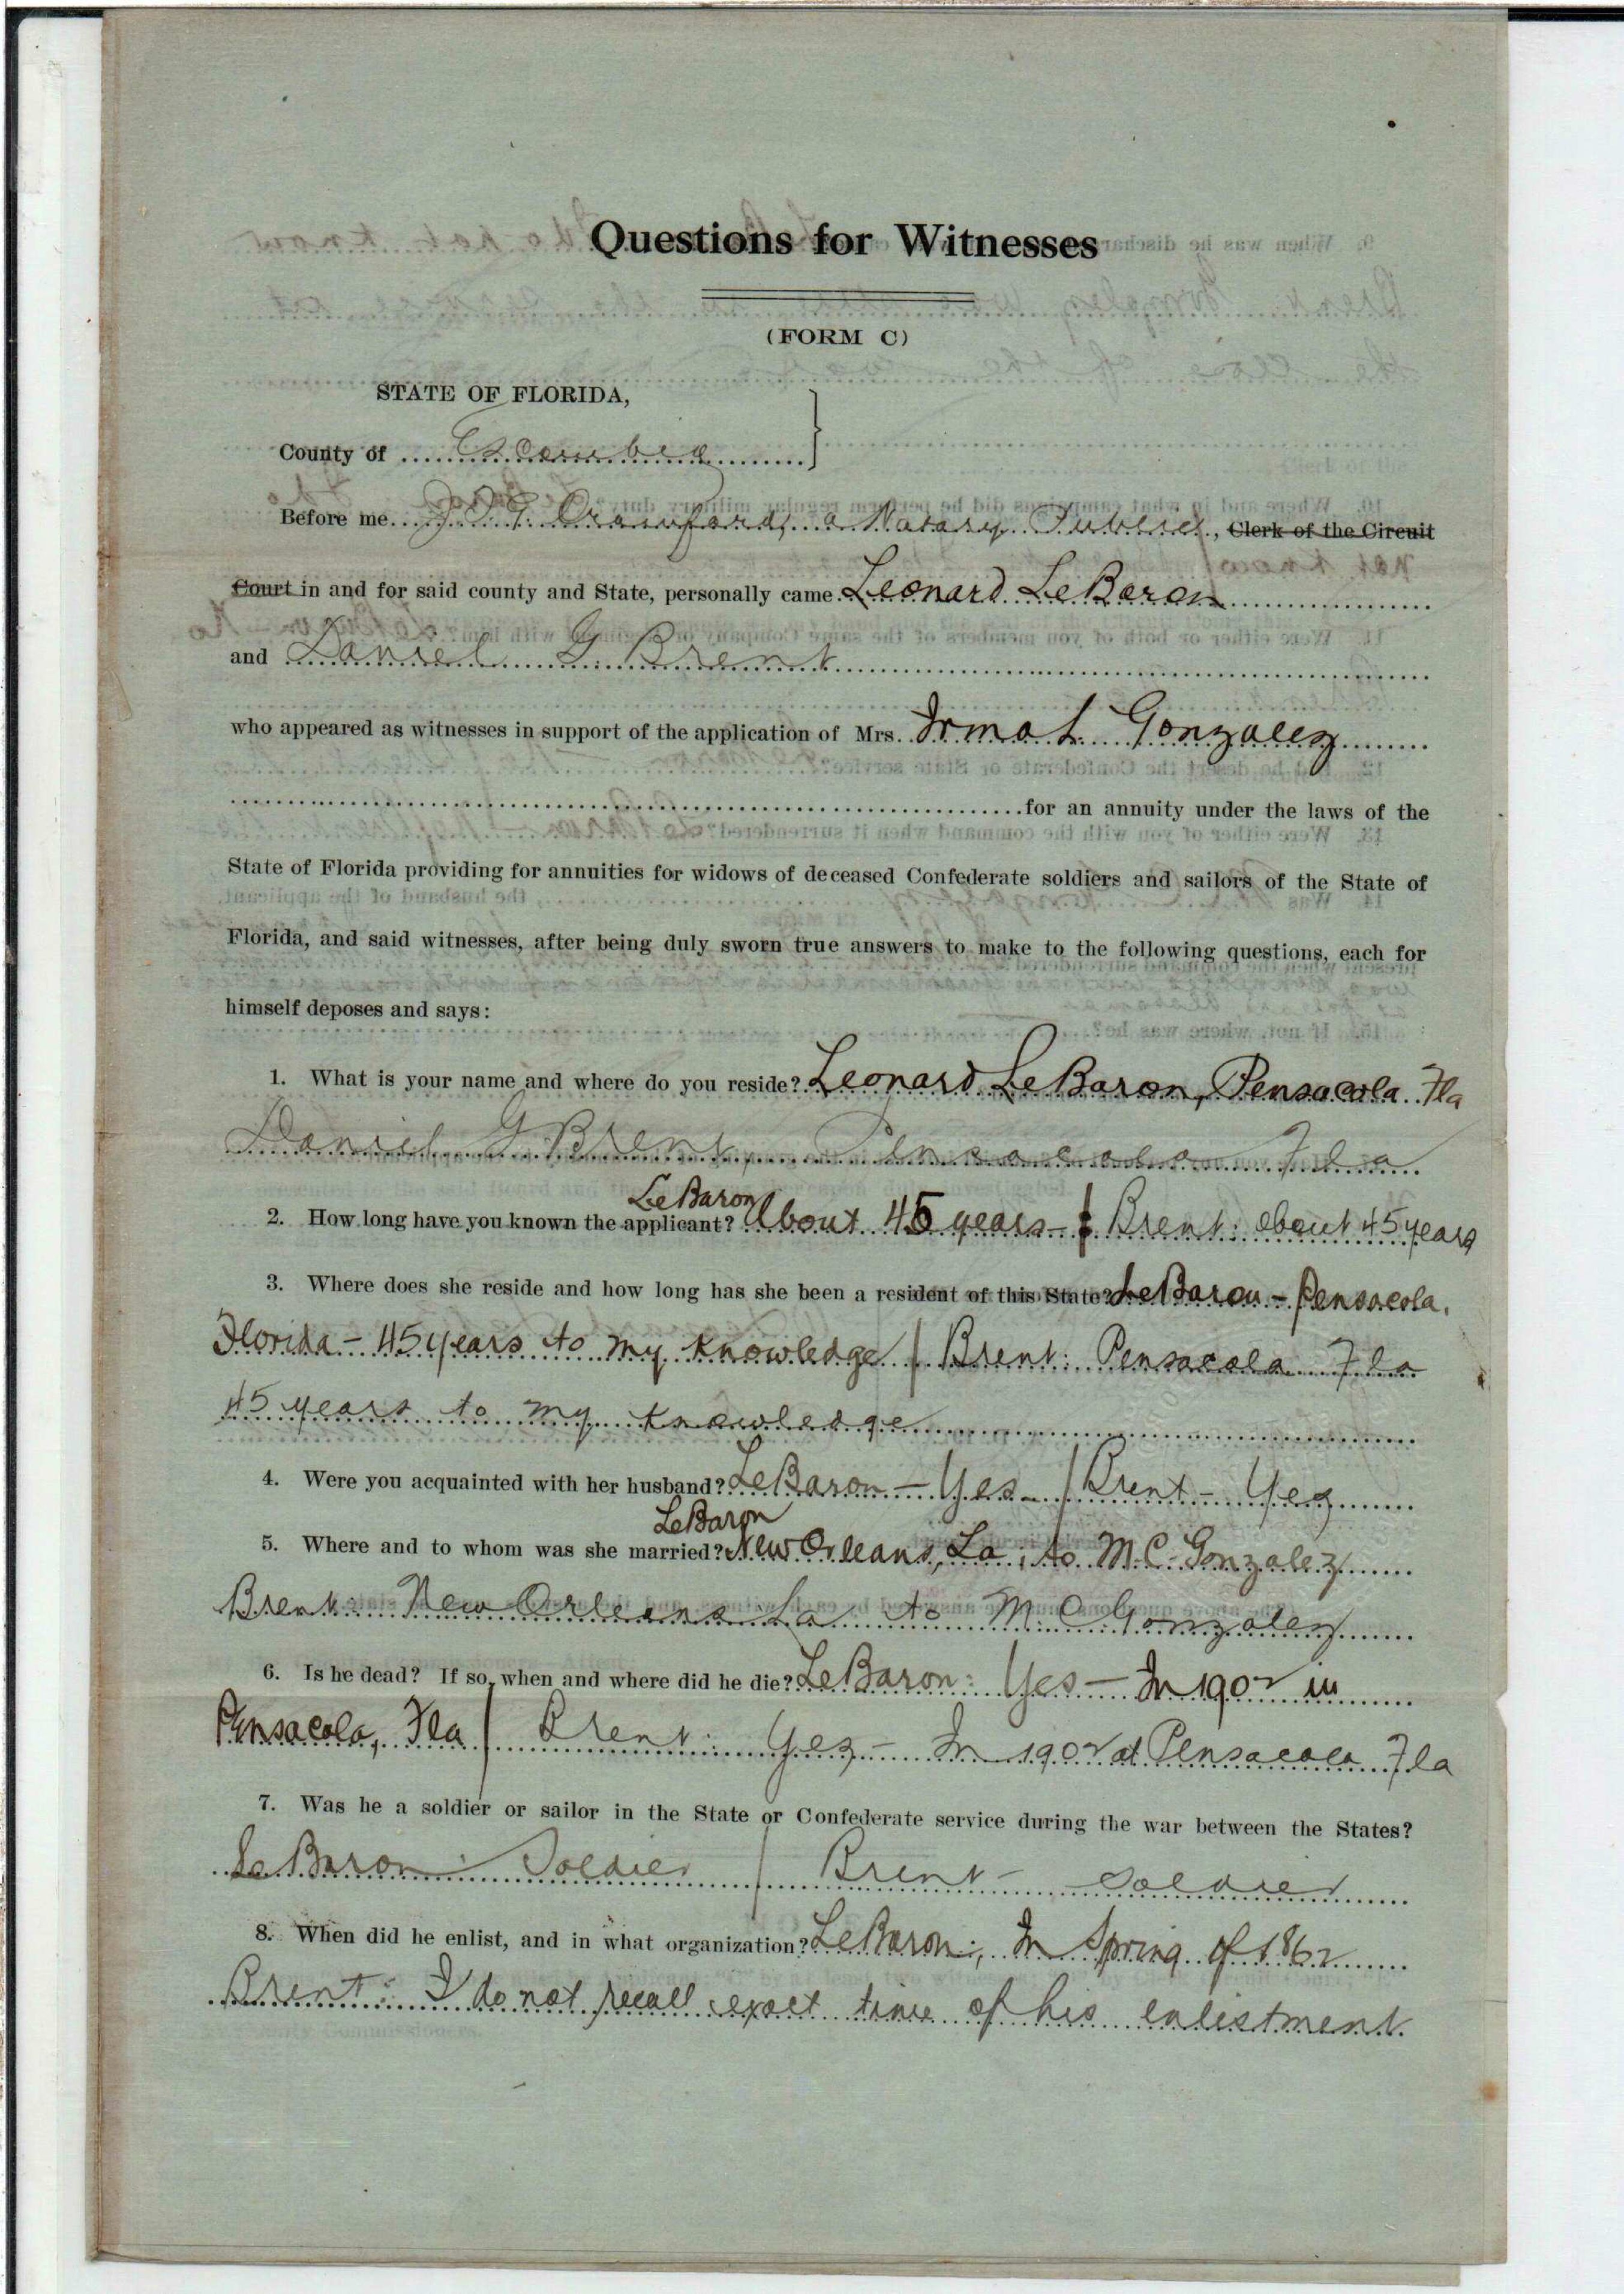 Questions for Witnesses
(FORM C)
STATE OF FLORIDA,
County of Escambia
Before me J. T. G. Crawford, a Notary Public, Clerk of the Circuit
Court in and for said county and State, personally came Leonard LeBaron
and Daniel G Brent
who appeared as witnesses in support of the application of Mrs. Irma L. Gonzalez
for an annuity under the laws of the
State of Florida providing for annuities for widows of deceased Confederate soldiers and sailors of the State of
Florida, and said witnesses, after being duly sworn true answers to make to the following questions, each for
himself deposes and says:
1. What is your name and where do you reside? Leonard LeBaron, Pensacola Fla
Daniel G Brent, Pensacola Fla
LeBaron
2. How long have you known the applicant? About 45 years - Brent: about 45 years
3. Where does she reside and how long has she been a resident of this State? LeBaron - Pensacola,
Florida - 45 years to my knowledge / Brent: Pensacola Fla
45 years to my knowledge
4. Were you acquainted with her husband? LeBaron - Yes - / Brent - Yes
LeBaron
5. Where and to whom was she married? New Orleans, La, to M.C. Gonzalez
Brent: New Orleans La to M C Gonzalez
6. Is he dead? If so, when and where did he die? LeBaron: Yes - In 1902 in
Pensacola, Fla / Brent: Yes - In 1902 at Pensacola Fla
7. Was he a soldier or sailor in the State or Confederate service during the war between the States?
LeBaron: Soldier / Brent - Soldier
8. When did he enlist, and in what organization? LeBaron:, In Spring of 1862
Brent: I do not recall exact time of his enlistment.